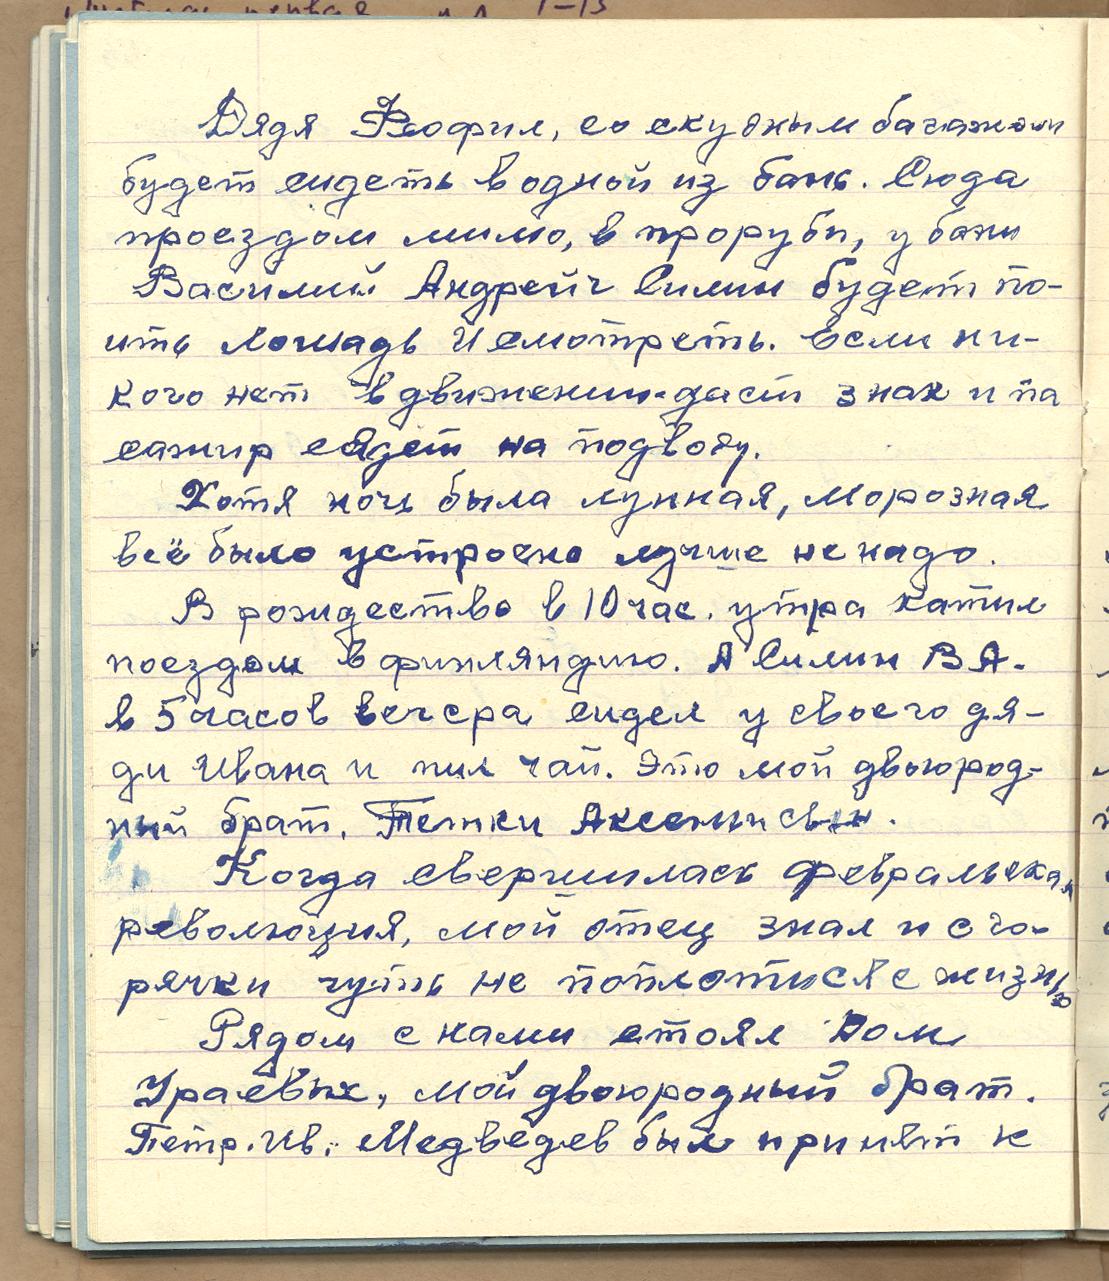 Дядя Феофил, со скудным багажом
будет сидеть в одной из бань. Сюда
проездом мимо, в проруби, у бани
Василий Андрейч Силин будет по-
ить лошадь и смотреть. Если ни-
кого нет в движении-даст знак и па
сажир сядет на подводу.
Хотя ночь была лунная, морозная
всё было устроено лучше не надо.
В рождество в 10 час. утра катил
поездом в финляндию. А Силин В А.
в 5 часов вечера сидел у своего дя-
ди Ивана и пил чай. Это мой двоюрод-
ный брат. Тетки Аксеньи сын.
Когда свершилась февральская
революция, мой отец знал и с го-
рячки чуть не поплотился с жизнью
Рядом с нами стоял Дом
Ураевых, мой двоюродный брат.
Петр. Ив. Медведев был принят к